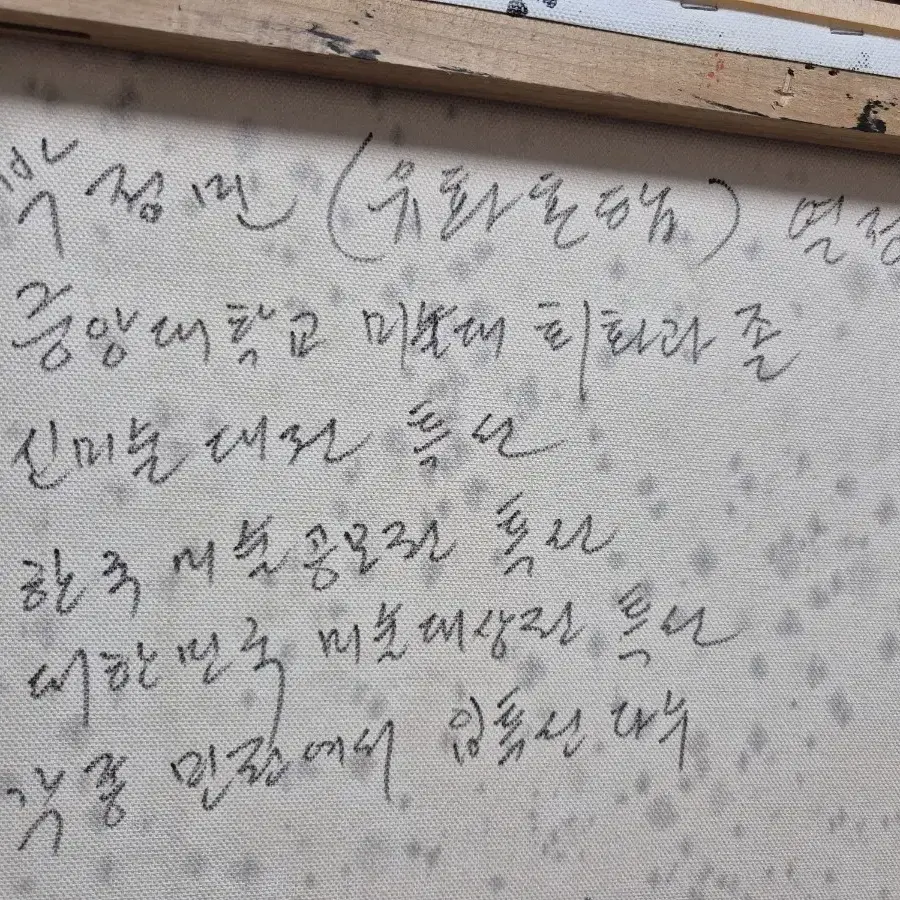 박정민 (유화혼합) 열정
중앙대학교 미술대 회화과 졸
신미술대전 특선
한국미술공모전 특선
대한민국 미술대상전 특선
각종 민전에서 입특선 다수